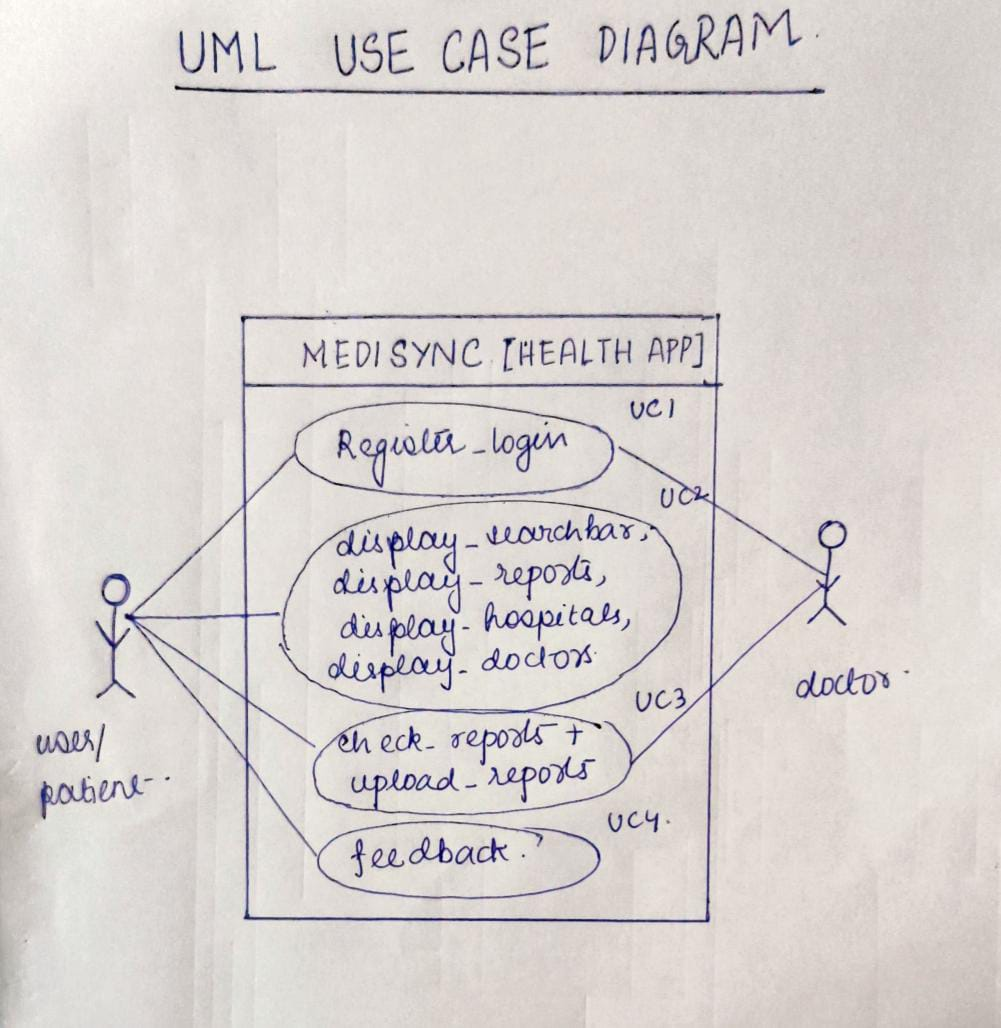 UML USE CASE DIAGRAM.
MEDISYNC [HEALTH APP]
UC1
Register_login
UC2
display_searchbar,
display_reports,
display_hospitals,
display_doctors.
UC3
check_reports +
upload_reports
UC4.
feedback.
user/
patient.
doctor.